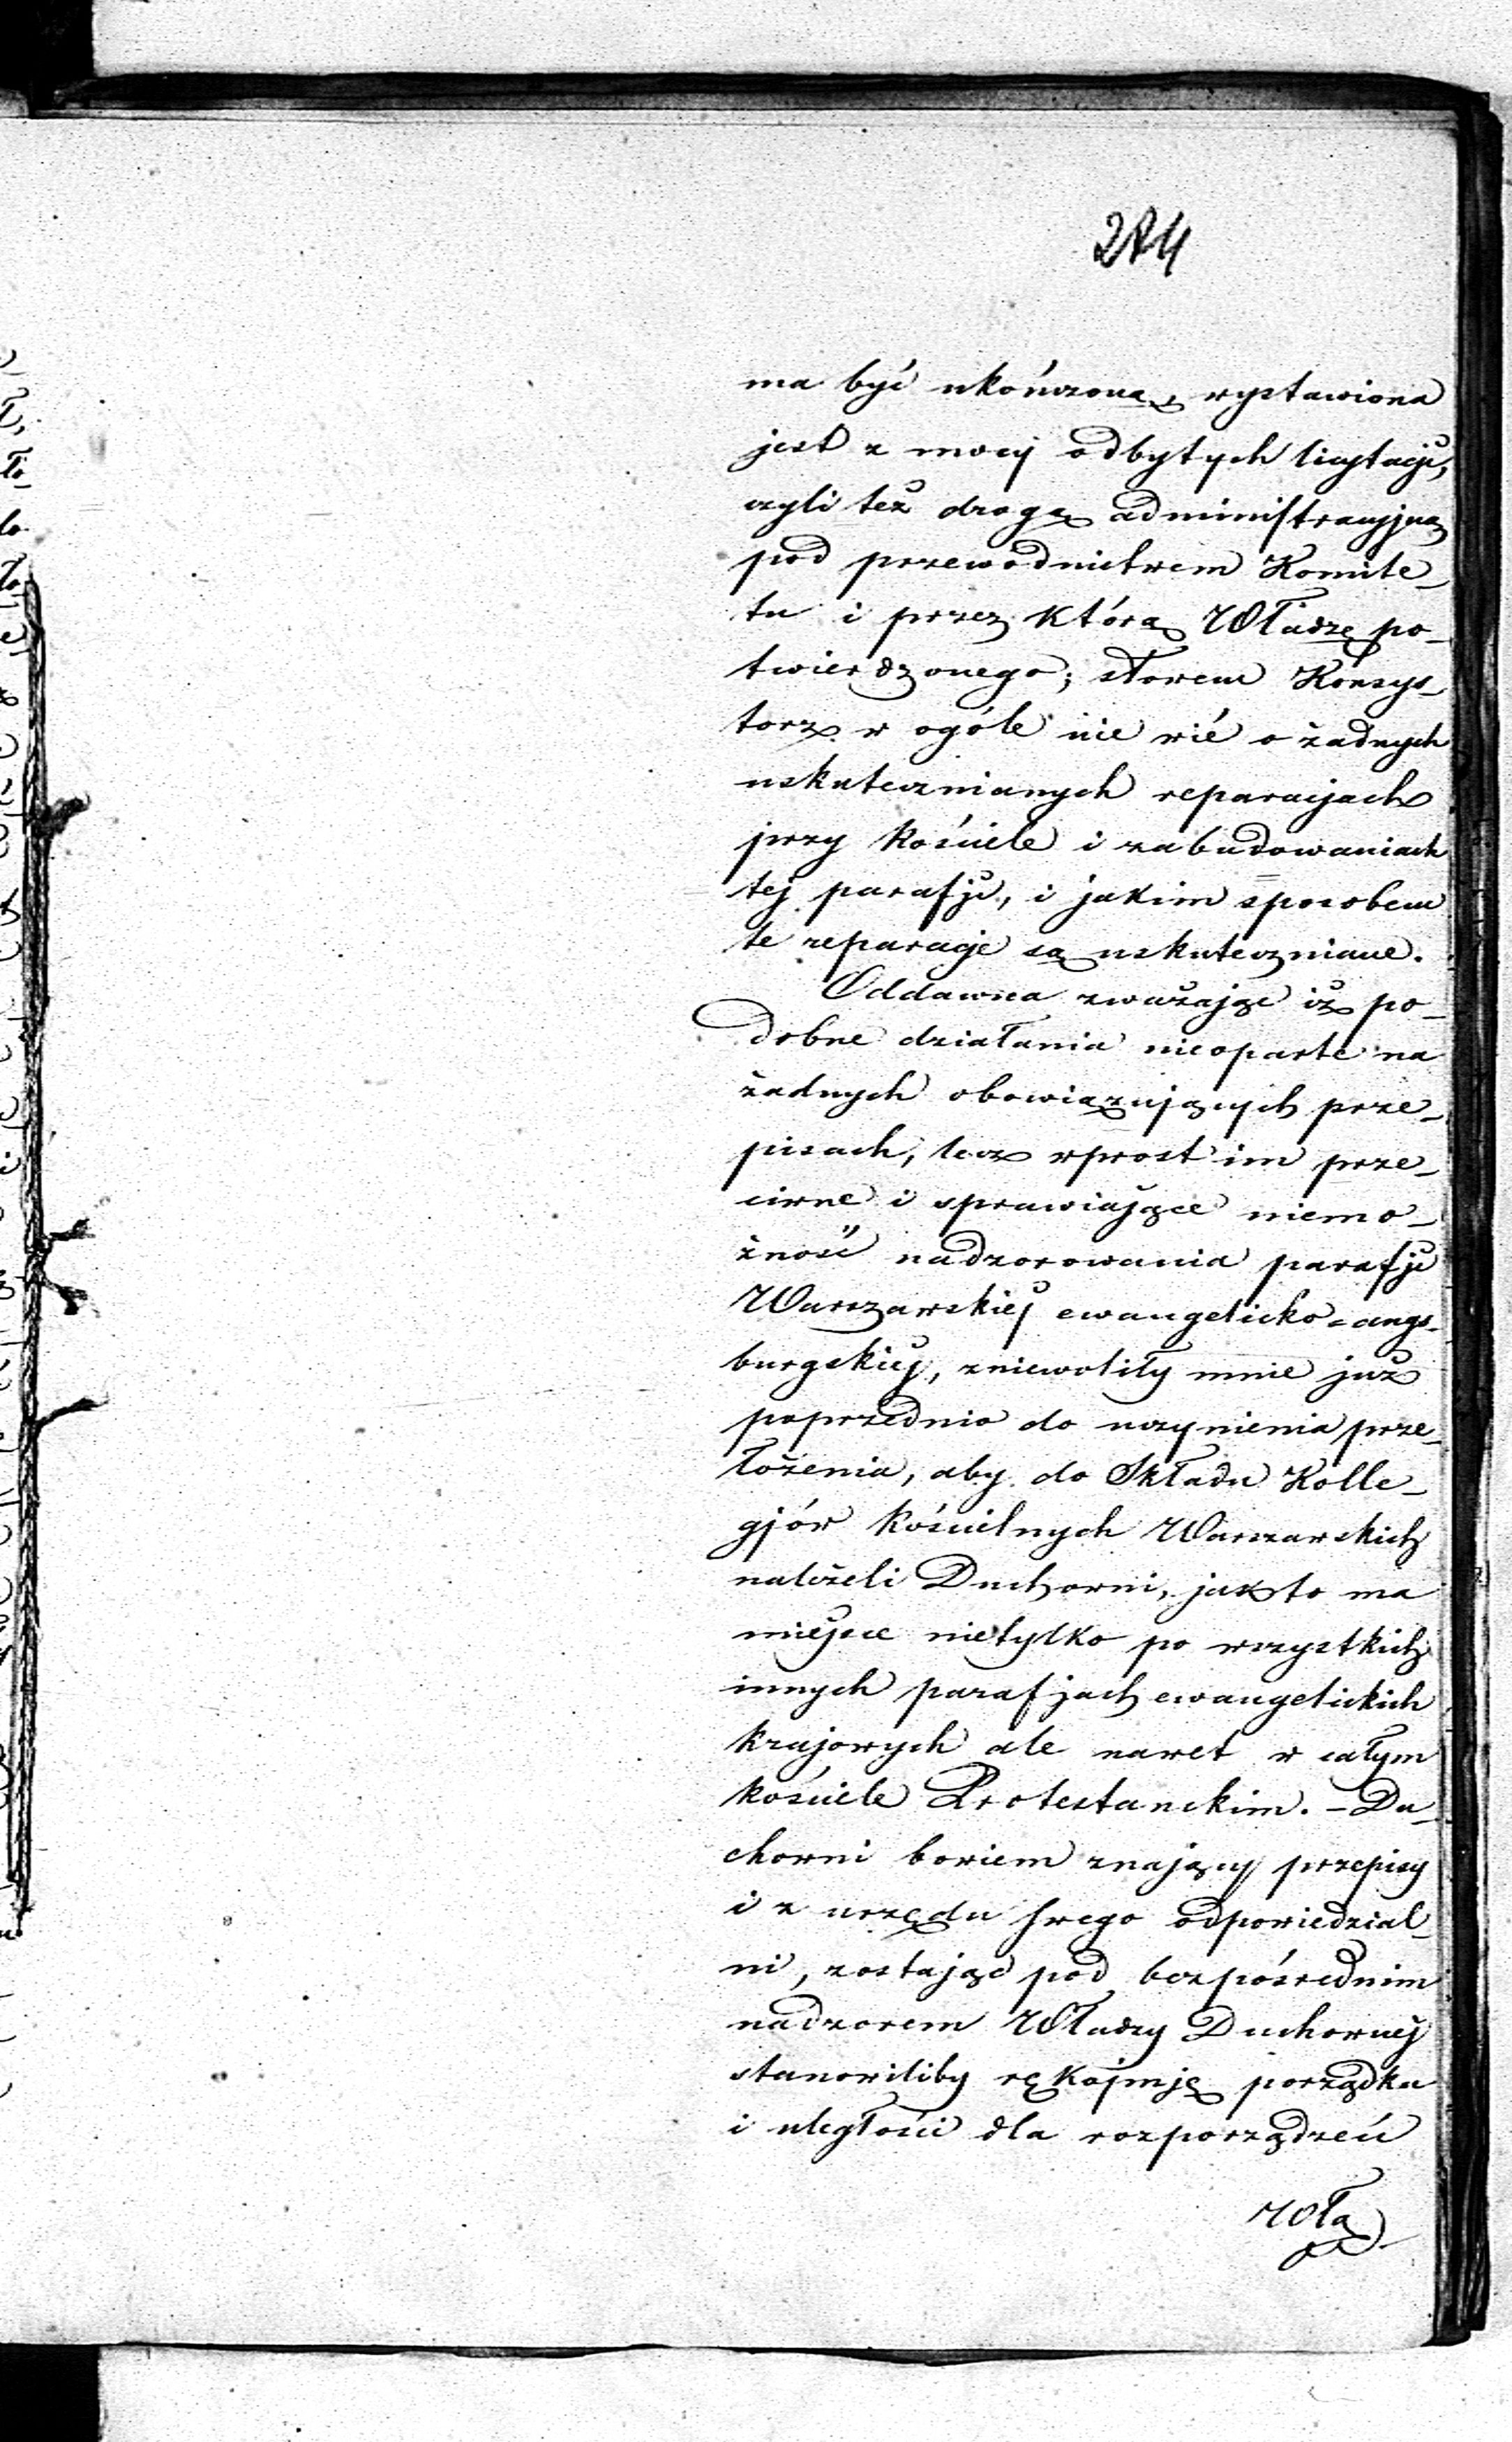 274
ma być ukończoną, wystawiona
jest z mocy odbytych licytacji,
czyli też drogą administracyjną
pod przewodnictwem Komite_
tu i przez którą Władzę po_
twierdzonego; słowem Konsys_
torz w ogóle nie wié o żadnych
uskutecznianych reparacjach
przy kościele i zabudowaniach
tej parafji, i jakim sposobem
te reparacje są uskuteczniane.
Oddawna zważając iż po_
dobne działania nieoparte na
żadnych obowiązujących prze_
pisach, lecz wprost im prze_
ciwne i sprawiające niemo_
żność nadzorowania parafji
Warszawskiej ewangelicko=augs_
burgskiej, zniewoliły mnie już
poprzednio do uczynienia prze_
łożenia, aby do Składu Kolle_
gjów kościelnych Warszawskich
należeli Duchowni, jak to ma
miejsce nietylko po wszystkich
innych parafjach ewangelickich
krajowych ale nawet w całym
kościele Protestanckim. – Du_
chowni bowiem znający przepisy
i z urzędu swego odpowiedzial_
ni, zostając pod bezpośrednim
nadzorem Władzy Duchownej
stanowiliby rękojmję porządku
i uległości dla rozporządzeń
Wła